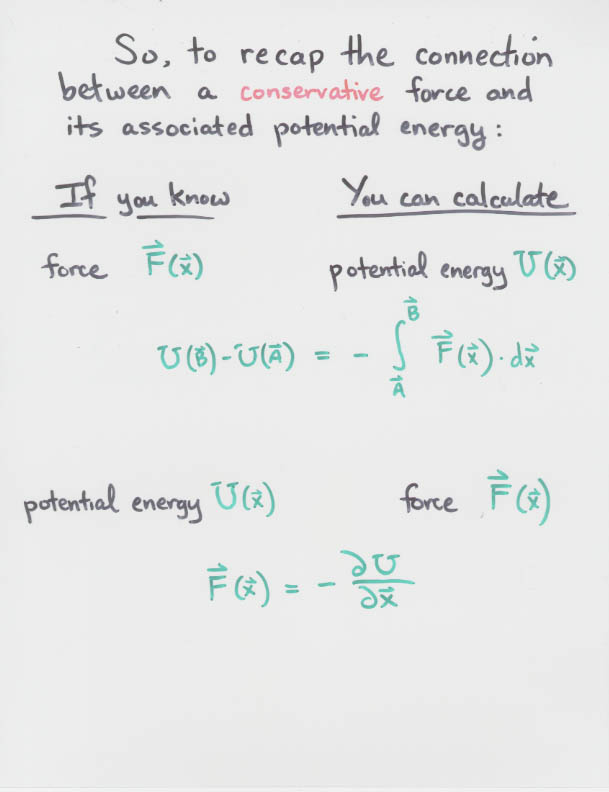 So, to recap the connection
between a conservative force and
its associated potential energy :
If you know You can calculate
force F⃗(x⃗) potential energy U(x⃗)
U(B⃗) - U(A⃗) = - ∫_A⃗^B⃗ F⃗(x⃗) · dx⃗
potential energy U(x⃗) force F⃗(x⃗)
F⃗(x⃗) = - ∂U/∂x⃗